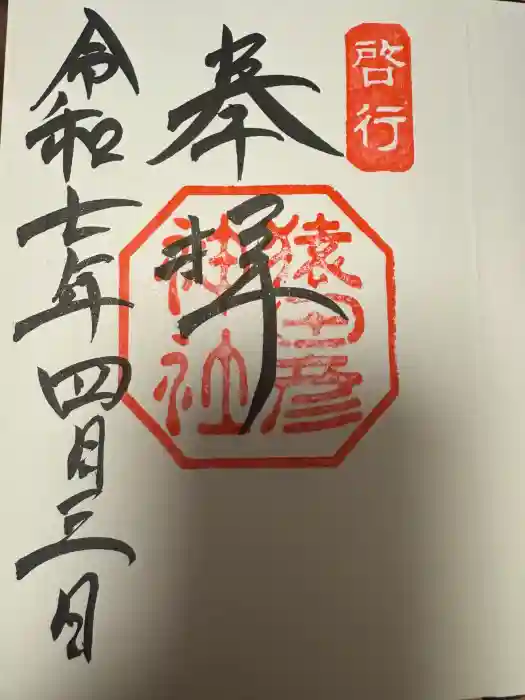 啓行
奉拝
猿田彦
神社
令和七年四月三日